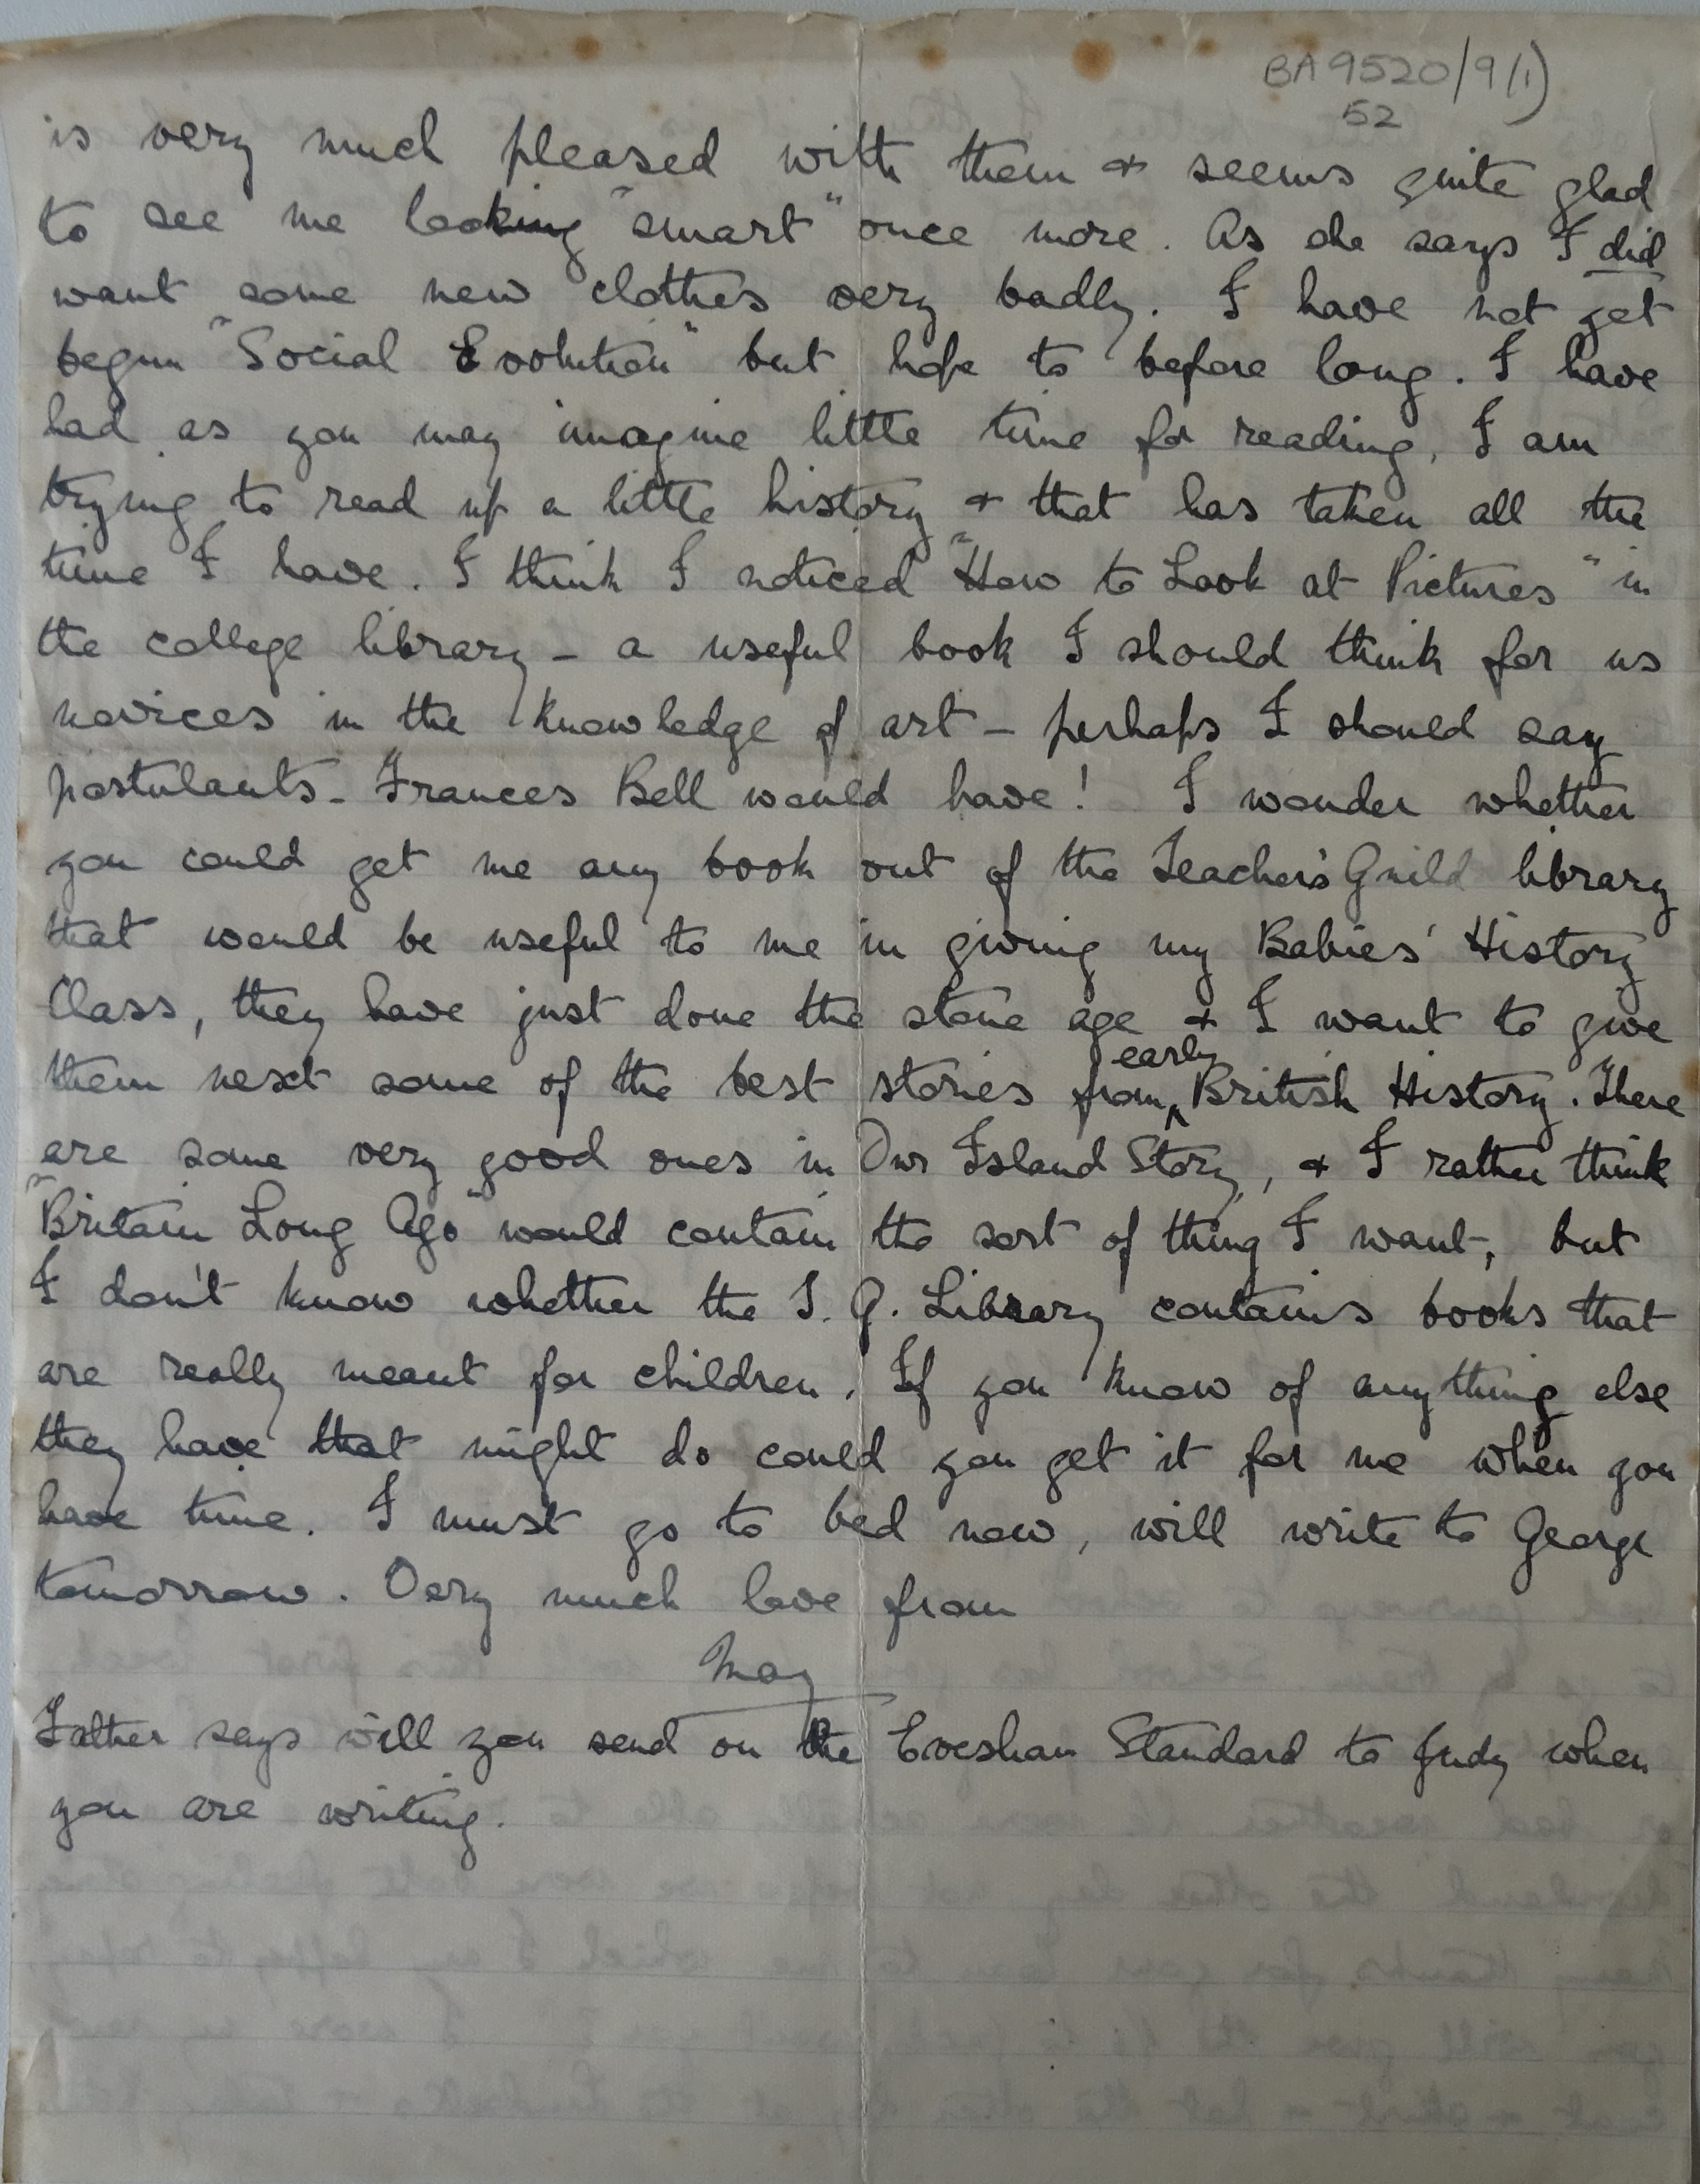 BA 9520/9(1)
52
is very much pleased with them & seems quite glad
to see me looking "smart" once more. As she says I did
want some new clothes very badly. I have not yet
begun "Social Evolution" but hope to before long. I have
had as you may imagine little time for reading, I am
trying to read up a little history & that has taken all the
time I have. I think I noticed "How to Look at Pictures" in
the college library - a useful book I should think for us
novices in the knowledge of art - perhaps I should say
postulants - Frances Bell would have! I wonder whether
you could get me any book out of the Teachers' Guild library
that would be useful to me in giving my Babies' History
Class, they have just done the stone age & I want to give
them next some of the best stories from early British History. There
are some very good ones in Our Island Story, & I rather think
"Britain Long Ago" would contain the sort of thing I want, but
I don't know whether the T. G. Library contains books that
are really meant for children. If you know of anything else
they have that might do could you get it for me when you
have time. I must go to bed now, will write to George
tomorrow. Very much love from
May
Father says will you send on the Evesham Standard to Judy when
you are writing.